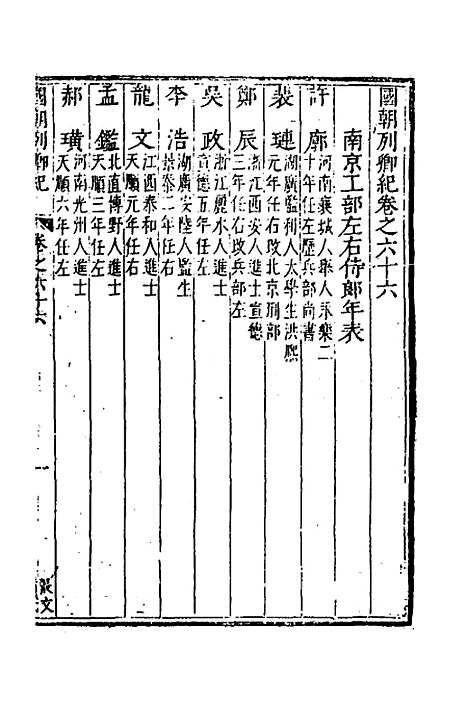 國朝列卿紀卷之六十六
南京工部左右侍郎年表
許廓 河南襄城人舉人永樂二
十年任左歷兵部尚書
裴璉 湖廣監利人太學生洪熙
元年任右改北京刑部
鄭辰 浙江西安人進士宣德
三年任右改兵部左
吳政 浙江麗水人進士
宣德五年任左
李浩 湖廣安陸人監生
景泰二年任右
龍文 江西泰和人進士
天順元年任右
孟鑑 北直博野人進士
天順三年任左
郝璜 河南光州人進士
天順六年任左
國朝列卿紀
卷之六十六
張文